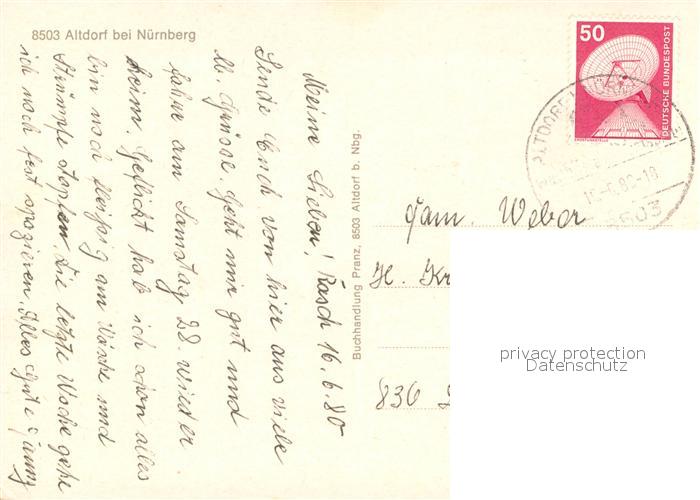 8503 Altdorf bei Nürnberg
Meine Lieben! Rasch 16.6.80
Sende Euch von hier aus viele
lb. Grüsse. Geht mir gut und
fahre am Samstag 28. wieder
heim. Geflickt hab ich schon alles
bin noch fleißig am Wäsche und
Strümpfe stopfen. Die letzte Woche gehe
ich noch fest spazieren. Alles Gute
Buchhandlung Pranz, 8503 Altdorf b. Nbg.
50
DEUTSCHE BUNDESPOST
ALTDORF
6.80-18
8503
Fam. Weber
H. Kr
836
privacy protection
Datenschutz